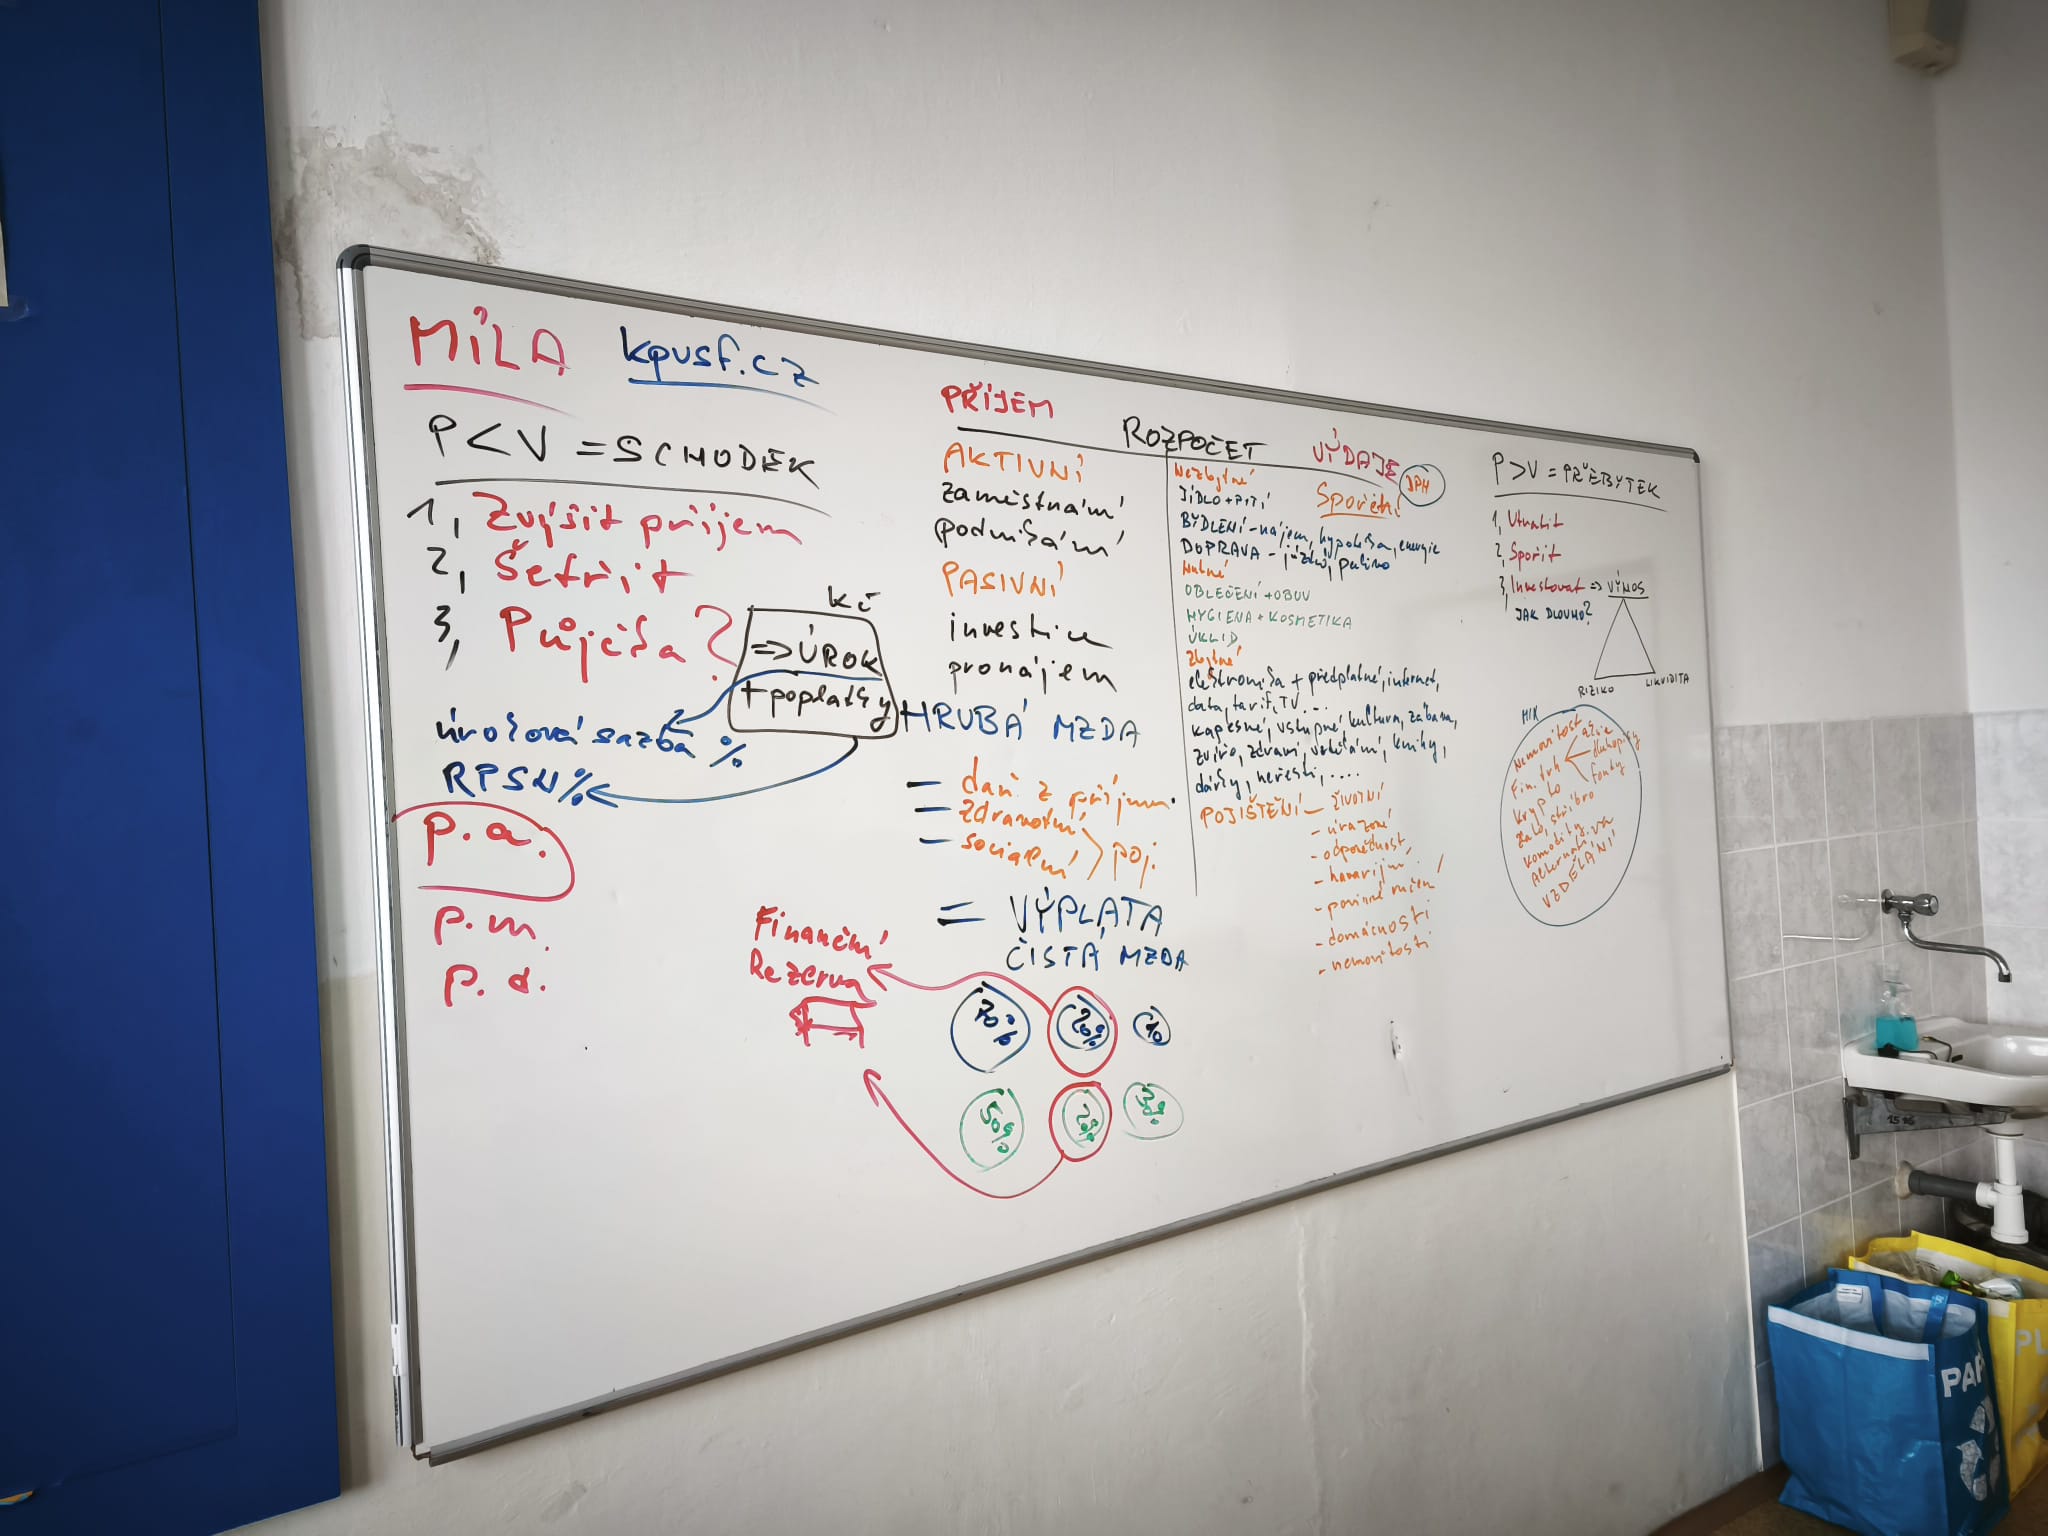 MÍLA kpusf.cz
P < V = SCHODEK
1, Zvýšit příjem
2, Šetřit
3, Půjčka?
Kč
=> ÚROK
+ poplatky
úroková sazba %
RPSN %
p.a.
p.m.
p.d.
Finanční
Rezerva
PŘÍJEM
AKTIVNÍ
zaměstnání
podnikání
PASIVNÍ
investice
pronájem
HRUBÁ MZDA
- daň z příjmu
- zdravotní
- sociální
poj.
= VÝPLATA
ČISTÁ MZDA
70% 20% 10
50% 20% 30%
ROZPOČET
VÝDAJE
DPH
Nezbytné
Spotřební
JÍDLO + PITÍ
BYDLENÍ - nájem, hypotéka, energie
DOPRAVA - jízdné, palivo
Nutné
OBLEČENÍ + OBUV
HYGIENA + KOSMETIKA
ÚKLID
Zbytné
elektronika + předplatné, internet,
data, tarif, TV...
kapesné, vstupné kultura, zábava,
zvíře, zdraví, vzdělání, knihy,
dárky, neřesti, ....
POJIŠTĚNÍ - ŽIVOTNÍ
- úrazové
- odpovědnost
- havarijní
- povinné ručení
- domácnosti
- nemovitosti
P > V = PŘEBYTEK
1, Utratit
2, Spořit
3, Investovat => VÝNOS
JAK DLOUHO?
RIZIKO
LIKVIDITA
MIX
Nemovitost
Fin. trh
akcie
dluhopisy
fondy
Krypto
zlato, stříbro
komodity
Alternativa
VZDĚLÁNÍ
PAP
PL